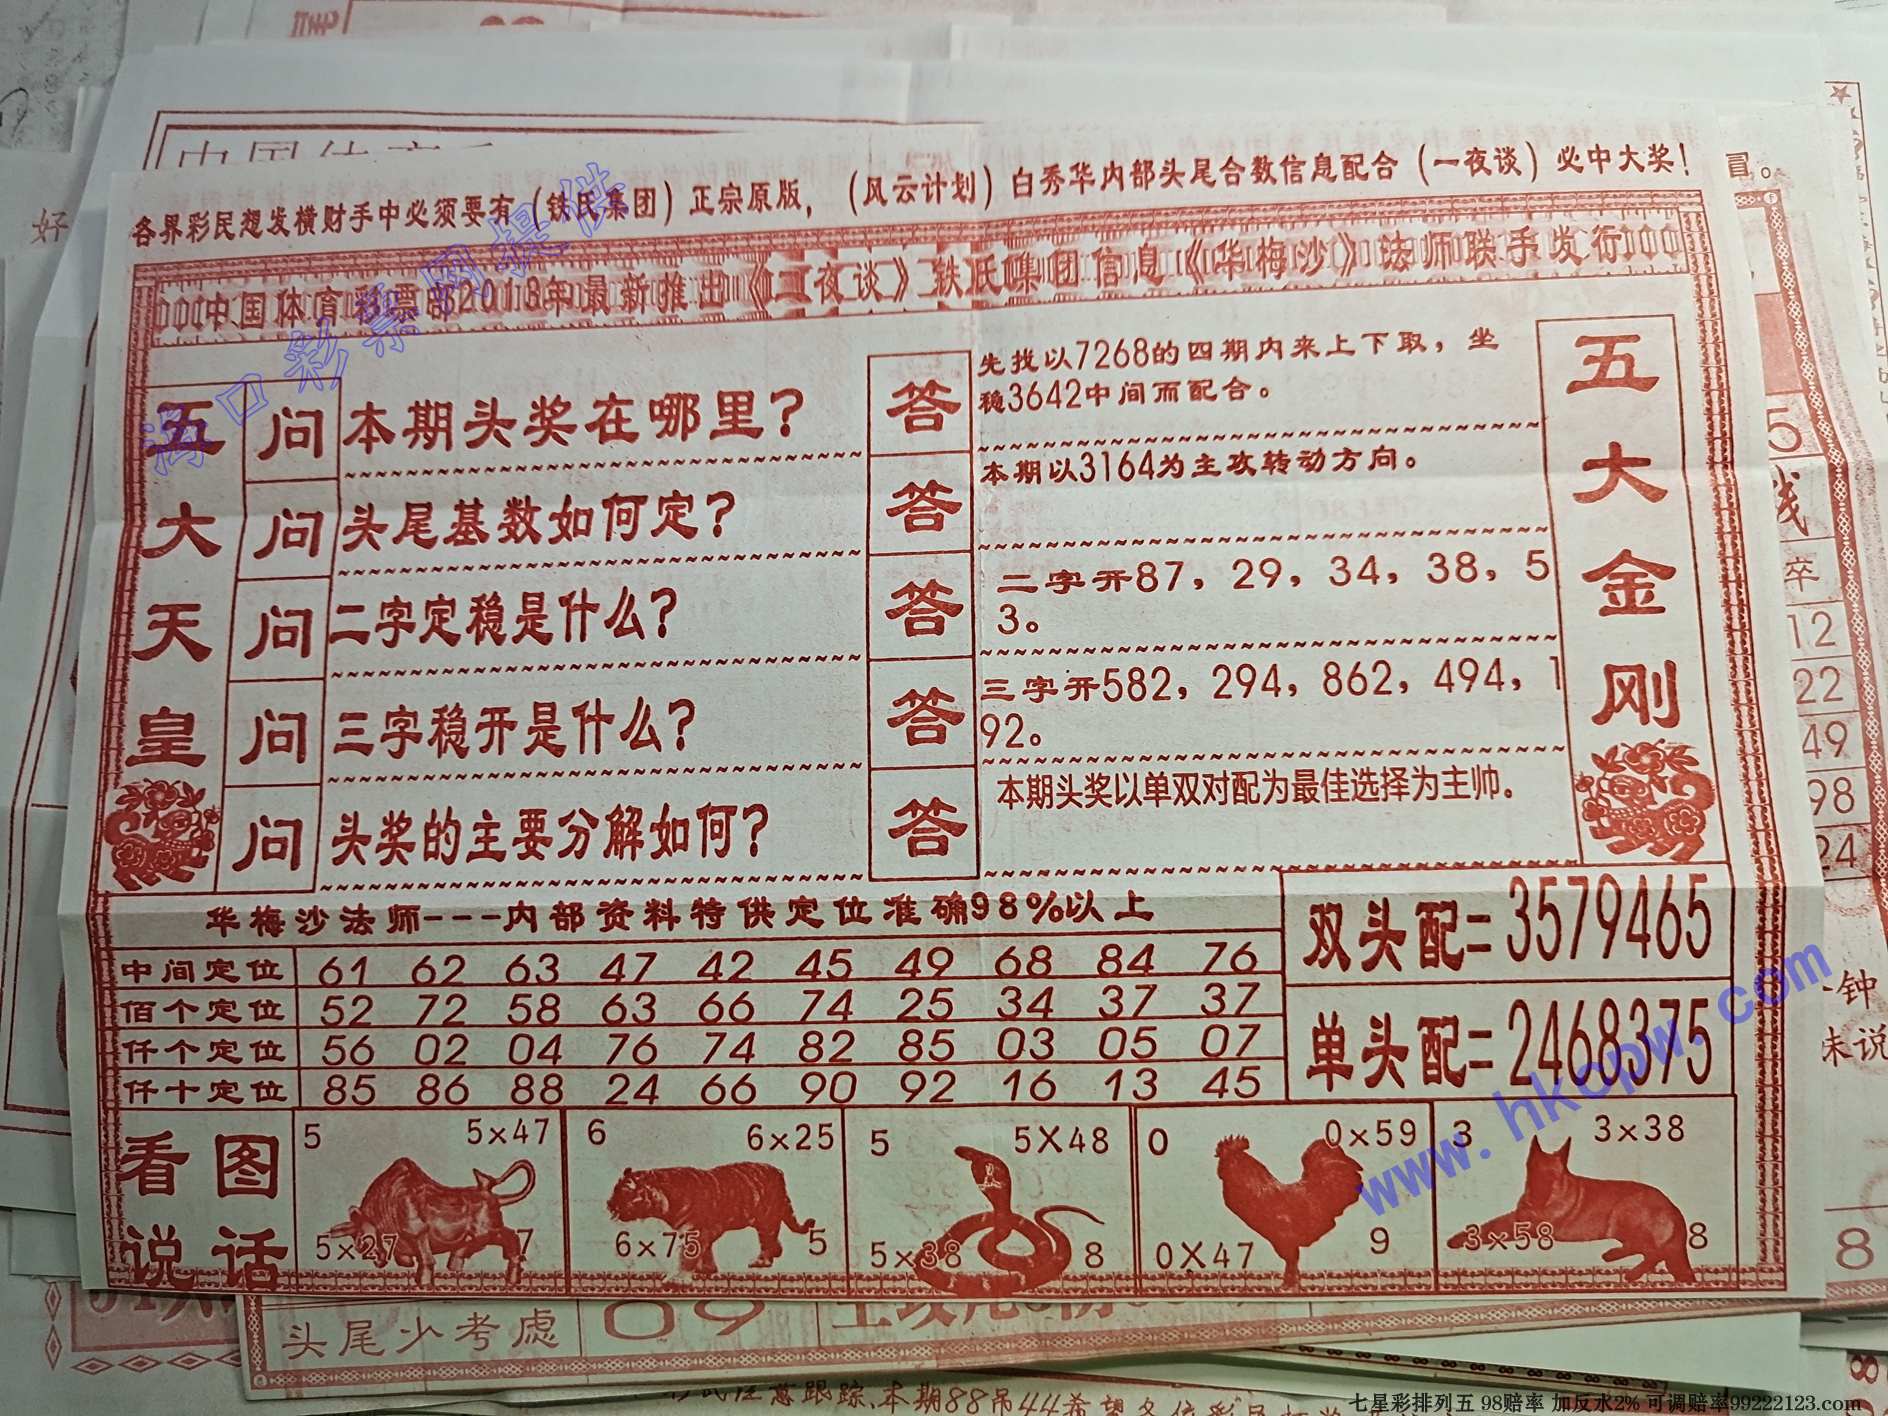 各界彩民想发横财手中必须要有（铁氏集团）正宗原版，（风云计划）白秀华内部头尾合数信息配合（一夜谈）必中大奖！
中国体育彩票部2013年最新推出《一夜谈》铁氏集团信息《华梅沙》法师联手发行
海口彩票网提供
五大天皇
问 本期头奖在哪里？
答 先找以7268的四期内来上下取，坐
稳3642中间而配合。
问 头尾基数如何定？
答 本期以3164为主攻转动方向。
问 二字定稳是什么？
答 二字开87，29，34，38，5
3。
问 三字稳开是什么？
答 三字开582，294，862，494，1
92。
问 头奖的主要分解如何？
答 本期头奖以单双对配为最佳选择为主帅。
五大金刚
华梅沙法师---内部资料特供定位准确98%以上
中间定位 61 62 63 47 42 45 49 68 84 76
佰个定位 52 72 58 63 66 74 25 34 37 37
仟个定位 56 02 04 76 74 82 85 03 05 07
仟十定位 85 86 88 24 66 90 92 16 13 45
双头配=3579465
单头配=2468375
www.hkcpw.com
看图
说话
5 5×47
5×27 7
6 6×25
6×75 5
5 5X48
5×38 8
0 0×59
0X47 9
3 3×38
3×58 8
头尾少考虑
跟踪.本期88吊44希望各位彩民
七星彩排列五 98赔率 加反水2% 可调赔率99222123.com
好
冒。
5
钱
卒
12
22
49
98
24
钟
8